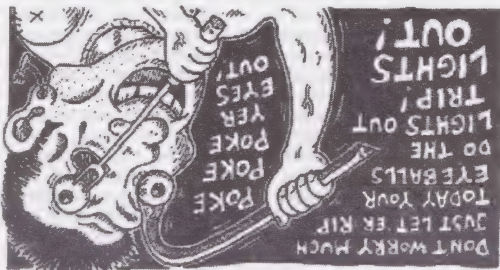 DON'T WORRY MUCH
JUST LET 'ER RIP
TODAY YOUR
EYEBALLS
DO THE
LIGHTS OUT
TRIP!
LIGHTS
OUT!
POKE
POKE
POKE
YER
EYES
OUT!